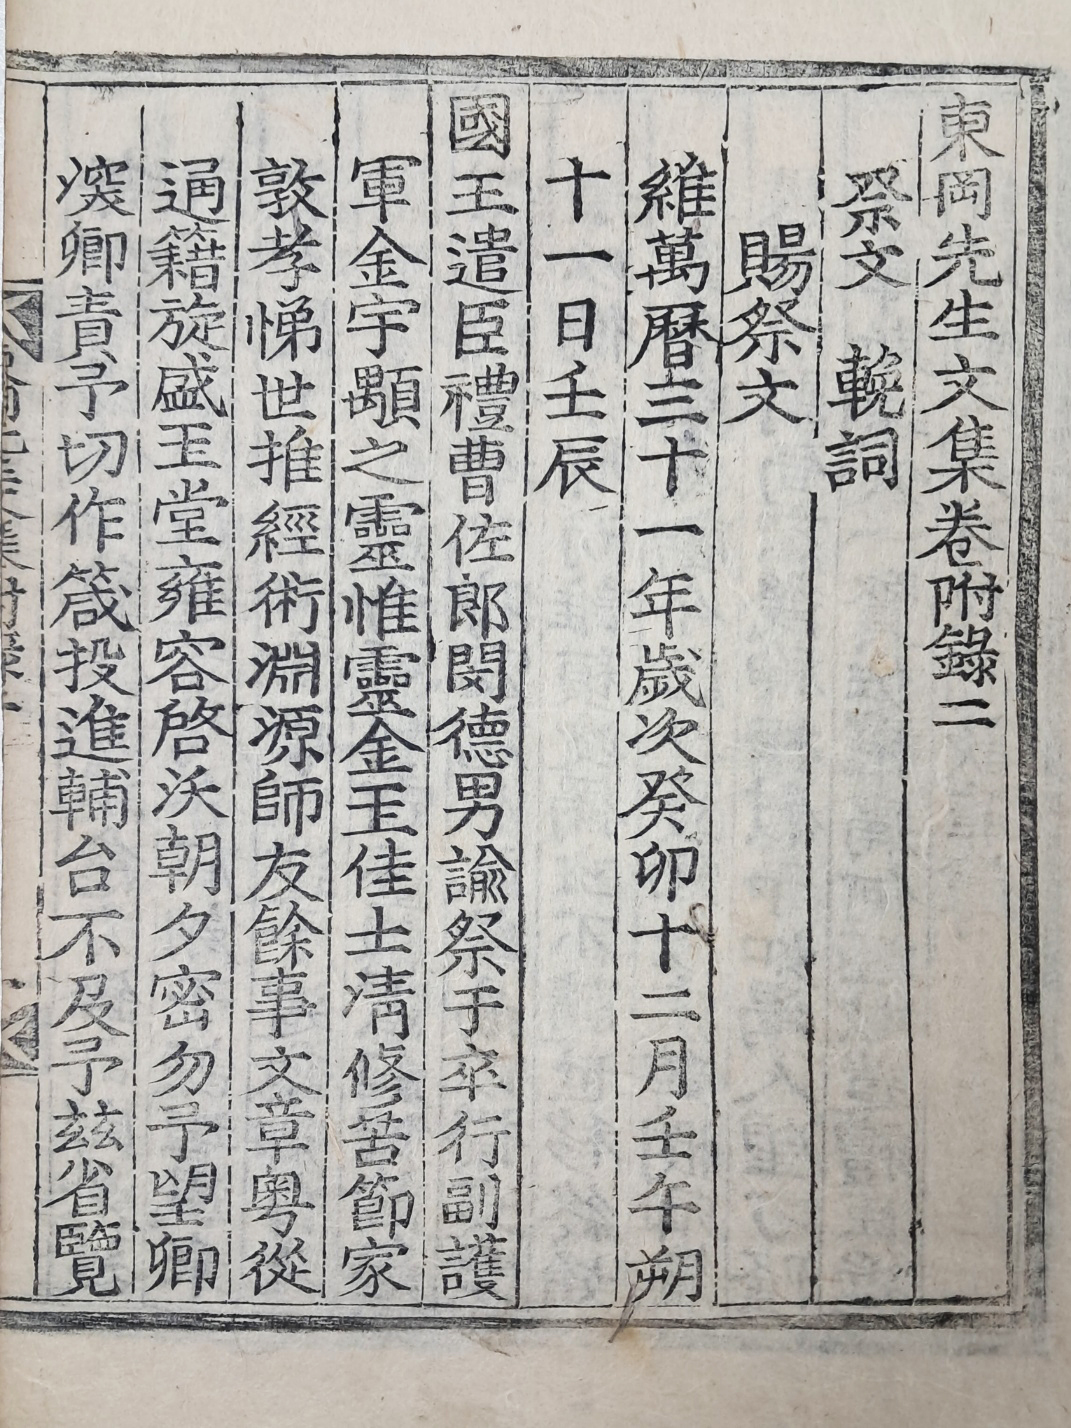 東岡先生文集卷附錄二
祭文 輓詞
賜祭文
維萬曆三十一年歲次癸卯十二月壬午朔
十一日壬辰
國王遣臣禮曹佐郎閔德男諭祭于卒行副護
軍金宇顒之靈惟靈金玉佳士淸修苦節家
敦孝悌世推經術淵源師友餘事文章粤從
通籍旋盛玉堂雍容啓沃朝夕密勿予望卿
深卿責予切作箴投進輔台不及予玆省覽